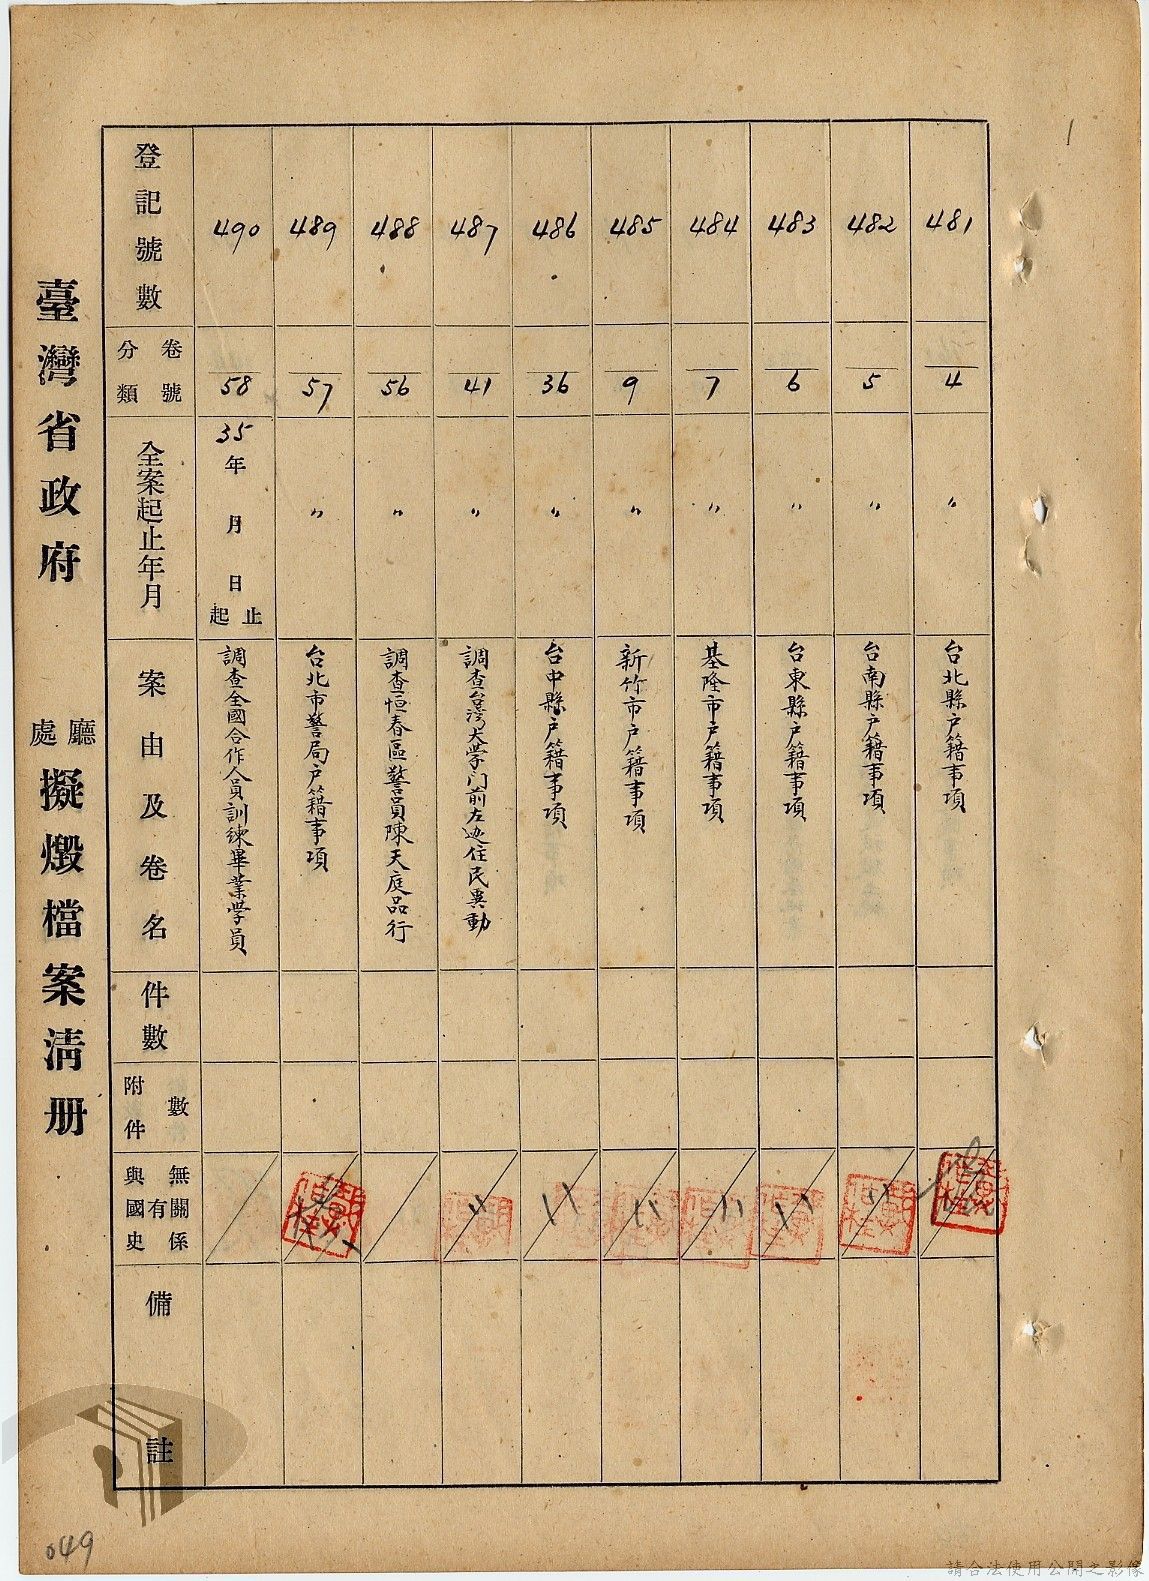 1
登記號數
卷號
分類
全案起止年月
案由及卷名
件數
附件
數
與國史
有
無關係
備註
481
4
〃
台北縣戶籍事項
482
5
〃
台南縣戶籍事項
483
6
〃
台東縣戶籍事項
484
7
〃
基隆市戶籍事項
485
9
〃
新竹市戶籍事項
486
36
〃
台中縣戶籍事項
487
41
〃
調查台灣大學门前左边住民異動
488
56
〃
調查恒春區警員陳天庭品行
489
57
〃
台北市警局戶籍事項
490
58
35年月日
起止
調查全國合作人員訓練畢業学員
臺灣省政府
廳
處
擬燬檔案清册
049
請合法使用公開之影像